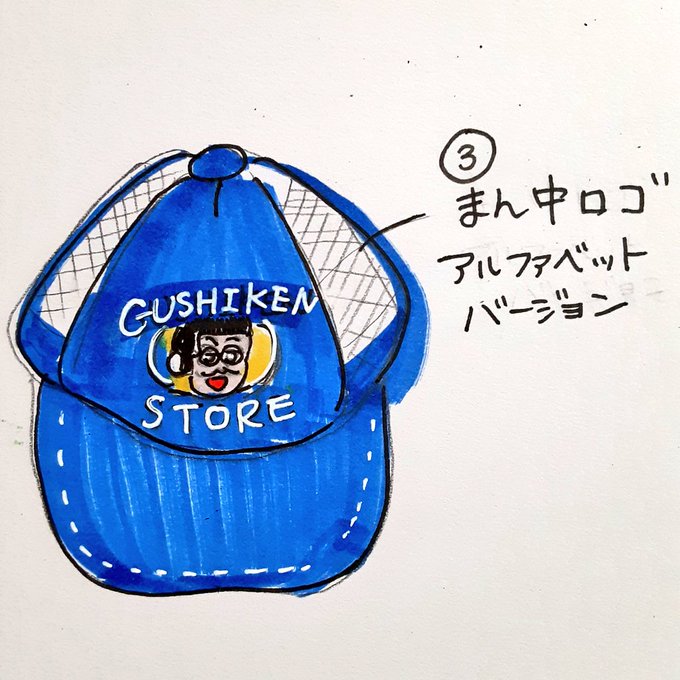 GUSHIKEN
STORE
③
まん中ロゴ
アルファベット
バージョン